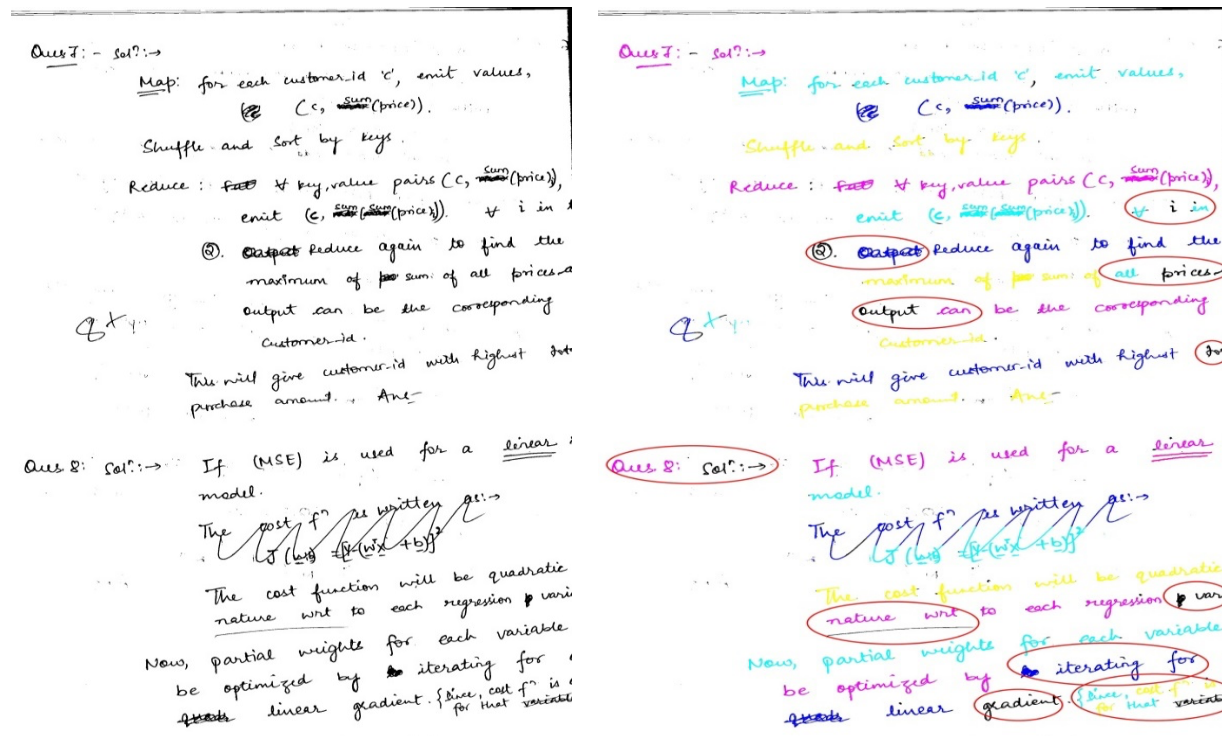 Ques 7: - Solⁿ:→
Map: for each customer_id 'c', emit values,
(c, sum(price)).
Shuffle and Sort by keys.
Reduce: ∀ key, value pairs (c, sum(price)),
emit (c, sum(price)). ∀ i in
②. Output Reduce again to find the
maximum of sum of all prices
output can be the corresponding
customer-id.
This will give customer-id with highest
purchase amount. Ans-
Ques 8: Solⁿ:→ If (MSE) is used for a linear
model.
The cost fⁿ is written as:→
The cost function will be quadratic
nature wrt to each regression vari
Now, partial weights for each variable
be optimized by iterating for
linear gradient. {Since, cost fⁿ is
for that variable
Ques 7: - Solⁿ:→
Map: for each customer_id 'c', emit values,
(c, sum(price)).
Shuffle and Sort by keys.
Reduce: ∀ key, value pairs (c, sum(price)),
emit (c, sum(price)). ∀ i in
②. Output Reduce again to find the
maximum of sum of all prices
output can be the corresponding
customer-id.
This will give customer-id with highest
purchase amount. Ans-
Ques 8: Solⁿ:→ If (MSE) is used for a linear
model.
The cost fⁿ is written as:→
The cost function will be quadratic
nature wrt to each regression var
Now, partial weights for each variable
be optimized by iterating for
linear gradient. {Since, cost fⁿ is
for that variable